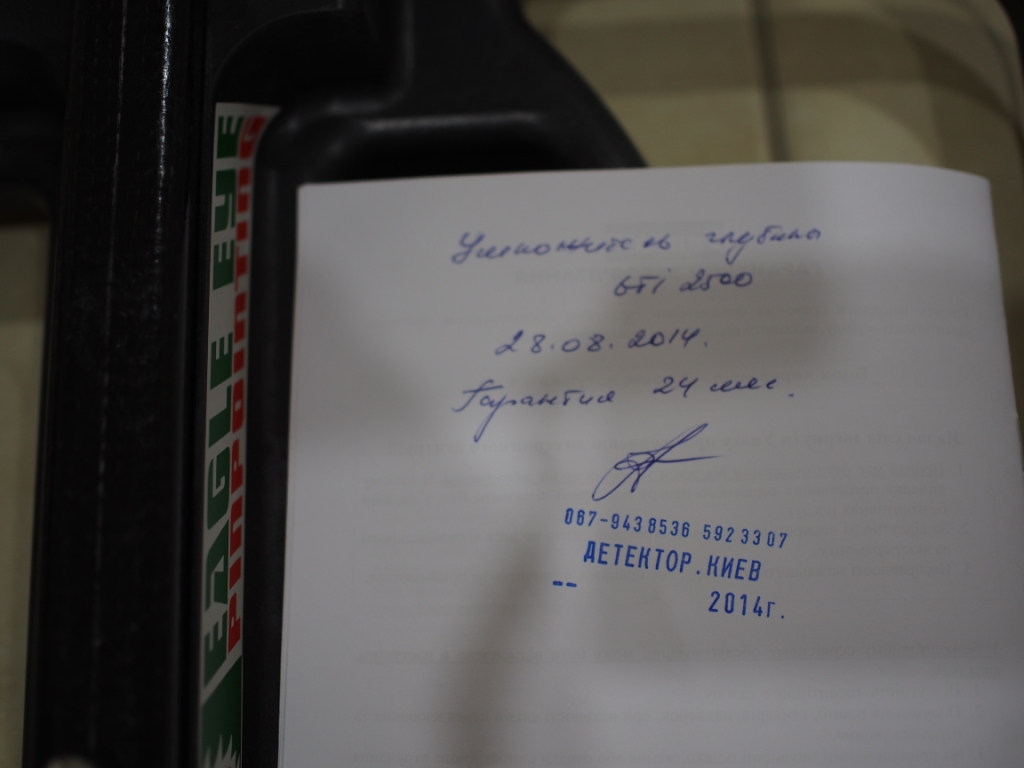 EAGLE EYE
PINPOINTING
глубины
GTI 2500
28.08.2014.
Гарантия 24 мес.
067-9438536 5923307
ДЕТЕКТОР.КИЕВ
--
2014г.